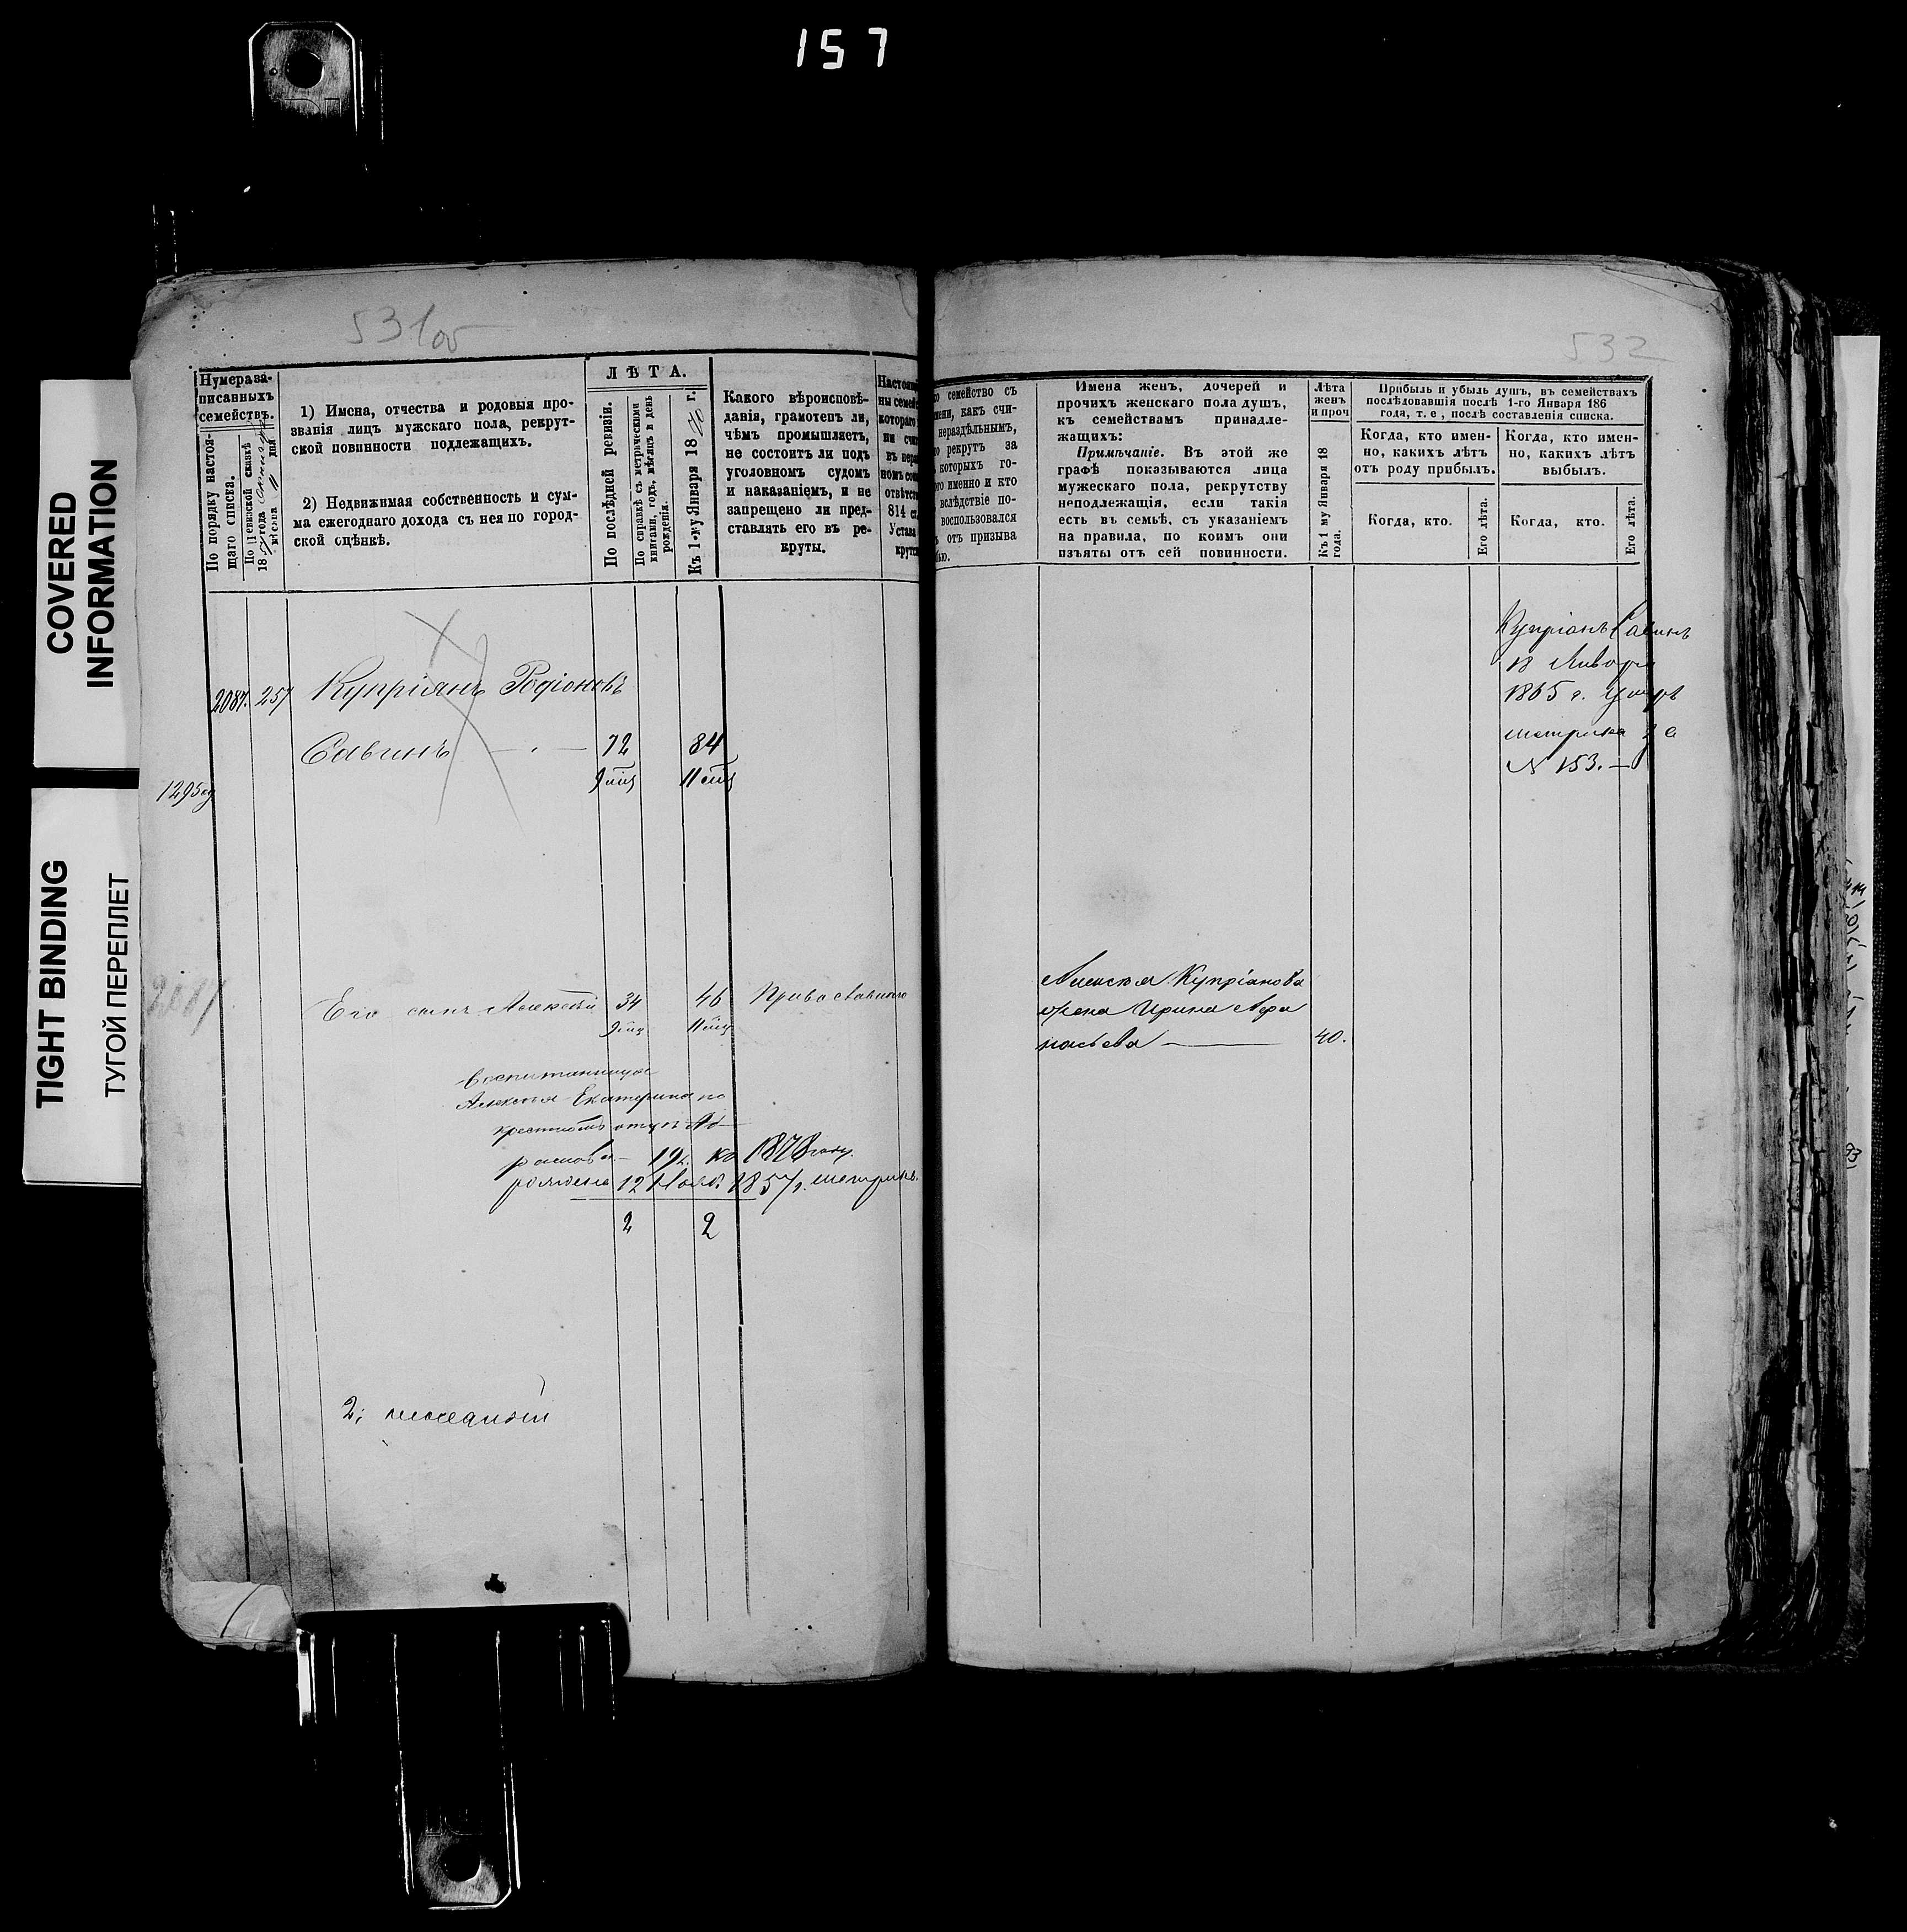 157
COVERED
INFORMATION
TIGHT BINDING
ТУГОЙ ПЕРЕПЛЕТ
531об
Нумера за-
писанныхъ
семействъ.
По порядку настоя-
щаго списка.
По ревизской сказкѣ
18 года
мѣсяца 11 дня
1) Имена, отчества и родовыя про-
званія лицъ мужскаго пола, рекрут-
ской повинности подлежащихъ.
2) Недвижимая собственность и сум-
ма ежегоднаго дохода съ нея по город-
ской оцѣнкѣ.
ЛѢТА.
По послѣдней ревизіи.
По справкѣ съ метрическими
книгами, годъ, мѣсяцъ и день
рожденія.
Къ 1-му Января 1870 г.
Какого вѣроисповѣ-
данія, грамотенъ ли,
чѣмъ промышляетъ,
не состоитъ ли подъ
уголовномъ судомъ
и наказаніемъ, и не
запрещено ли пред-
ставлять его въ ре-
круты.
2087. 257 Купріянъ Родіоновъ
Савинъ 72 84
9 мцъ 11 мцъ
Его сынъ Алексѣй 34 46 Православнаго
9 мцъ 11 мцъ
воспитанница
Алексѣя Екатерина по
крестномъ отцѣ Аб-
рамова 19 л. къ 1878 году.
рождена 12 Нояб. 1857 г. метрика.
2 2
2; мѣщанскій
532
ко семейство съ
нераздѣльнымъ,
рекрутъ за
которыхъ го-
именно и кто
вслѣдствіе по-
воспользовался
отъ призыва
Имена женъ, дочерей и
прочихъ женскаго пола душъ,
къ семействамъ принадле-
жащихъ:
Примѣчаніе. Въ этой же
графѣ показываются лица
мужескаго пола, рекрутству
неподлежащія, если такія
есть въ семьѣ, съ указаніемъ
на правила, по коимъ они
изъяты отъ сей повинности.
Лѣта
женъ
и проч
Къ 1 му Января 18
года.
Прибыль и убыль душъ, въ семействахъ
послѣдовавшія послѣ 1-го Января 186
года, т. е., послѣ составленія списка.
Когда, кто имен-
но, какихъ лѣтъ
отъ роду прибылъ.
Когда, кто имен-
но, какихъ лѣтъ
выбылъ.
Когда, кто.
Его лѣта.
Когда, кто.
Его лѣта.
Купріянъ Савинъ
18 Января
1865 г. умеръ
метрика за
N 153.
Алексѣя Купріанова
жена Ирина Афа
насьева 40.